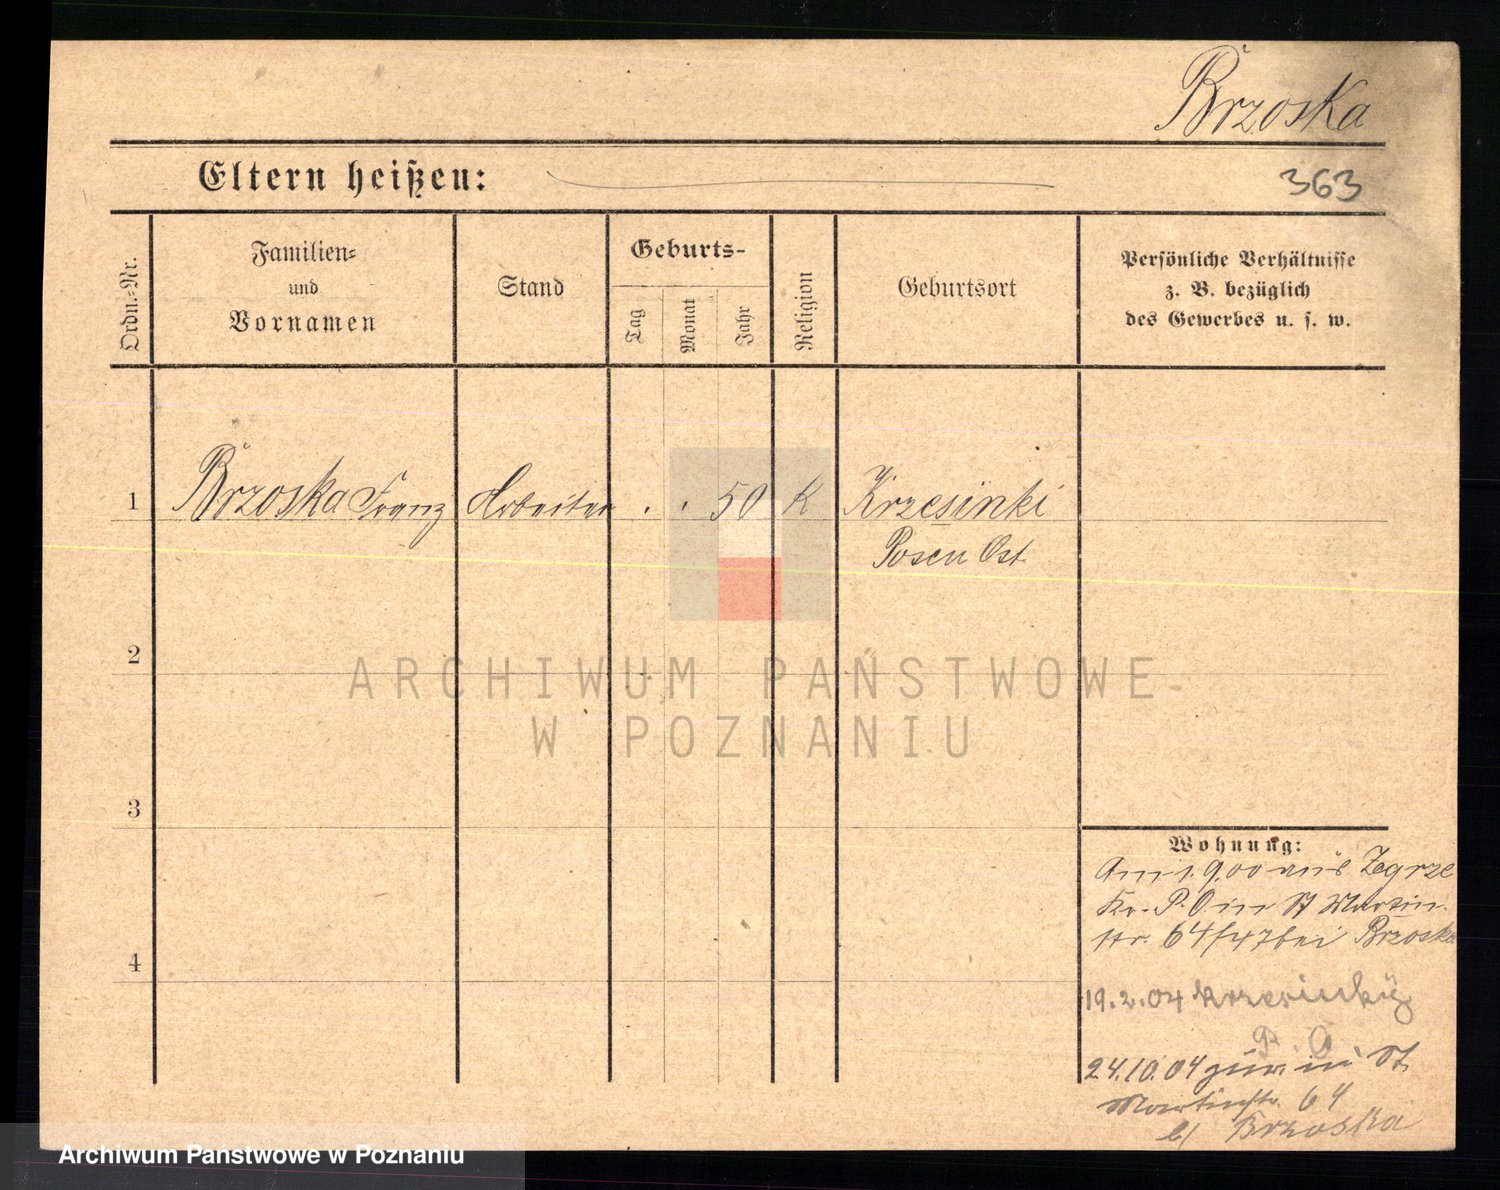 Brzoska
Eltern heißen:
363
Ordn.-Nr.
Familien-
und
Vornamen
Stand
Geburts-
Tag
Monat
Jahr
Religion
Geburtsort
Persönliche Verhältnisse
z. B. bezüglich
des Gewerbes u. s. w.
1 Brzoska Franz Arbeiter . . 50 K Krzesinki
Posen Ost
2
ARCHIWUM PAŃSTWOWE
W POZNANIU
3
Wohnung:
Am 1.9.00 aus Zegrze
Kr. P. O. in St Martin-
str. 64/47 bei Brzoska
4
19.2.04 Krzesinki
P. O.
24.10.04 zur. in St.
Martinstr. 64
b/ Brzoska
Archiwum Państwowe w Poznaniu